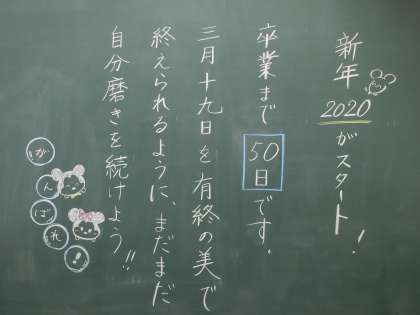 新年2020がスタート!
卒業まで50日です.
三月十九日を有終の美で
終えられるように、まだまだ
自分磨きを続けよう!!
がんばれ!